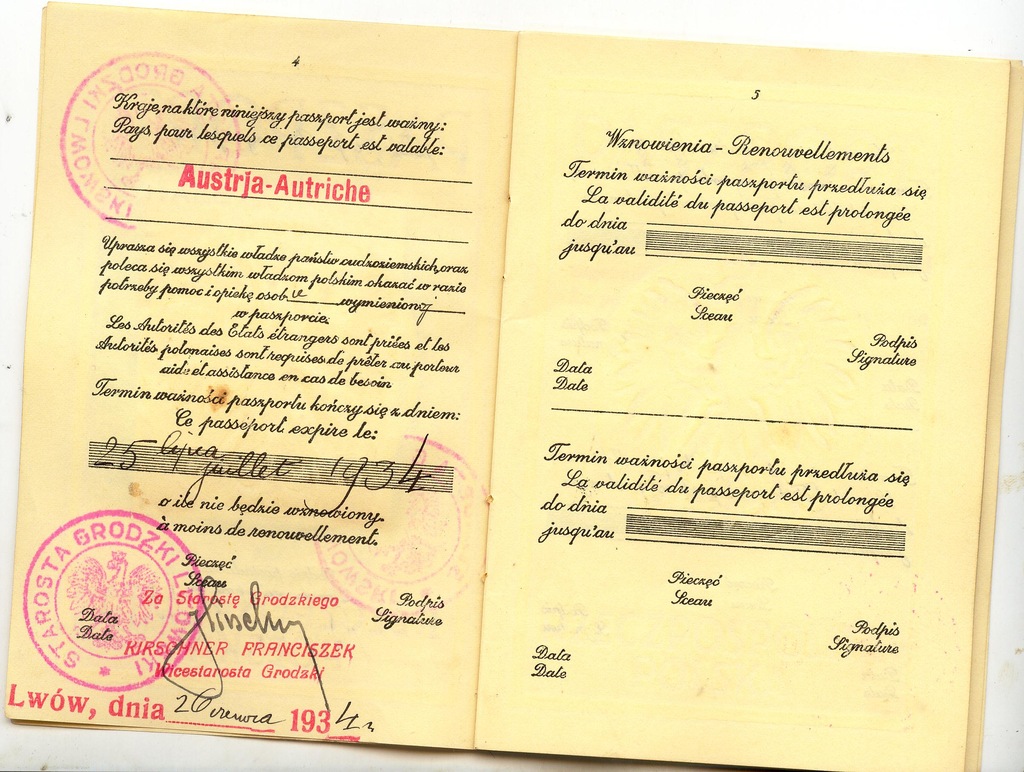 4
Kraje, na które niniejszy paszport jest ważny:
Pays pour lesquels ce passeport est valable:
Austrja-Autriche
Uprasza się wszystkie władze państw cudzoziemskich, oraz
poleca się wszystkim władzom polskim okazać w razie
potrzeby pomoc i opiekę osobie wymienionej
w paszporcie.
Les Autorités des Etats étrangers sont priées et les
Autorités polonaises sont requises de prêter au porteur
aide et assistance en cas de besoin
Termin ważności paszportu kończy się z dniem:
Ce passeport expire le:
25 lipca
juillet 1934
o ile nie będzie wznowiony.
à moins de renouvellement.
Pieczęć
Sceau
STAROSTA GRODZKI LWOWSKI
Za Starostę Grodzkiego
Podpis
Signature
Data
Date
KIRSCHNER FRANCISZEK
Wicestarosta Grodzki
Lwów, dnia 26 czerwca 1934 r.
5
Wznowienia - Renouvellements
Termin ważności paszportu przedłuża się
La validité du passeport est prolongée
do dnia
jusqu'au
Pieczęć
Sceau
Podpis
Signature
Data
Date
Termin ważności paszportu przedłuża się
La validité du passeport est prolongée
do dnia
jusqu'au
Pieczęć
Sceau
Podpis
Signature
Data
Date